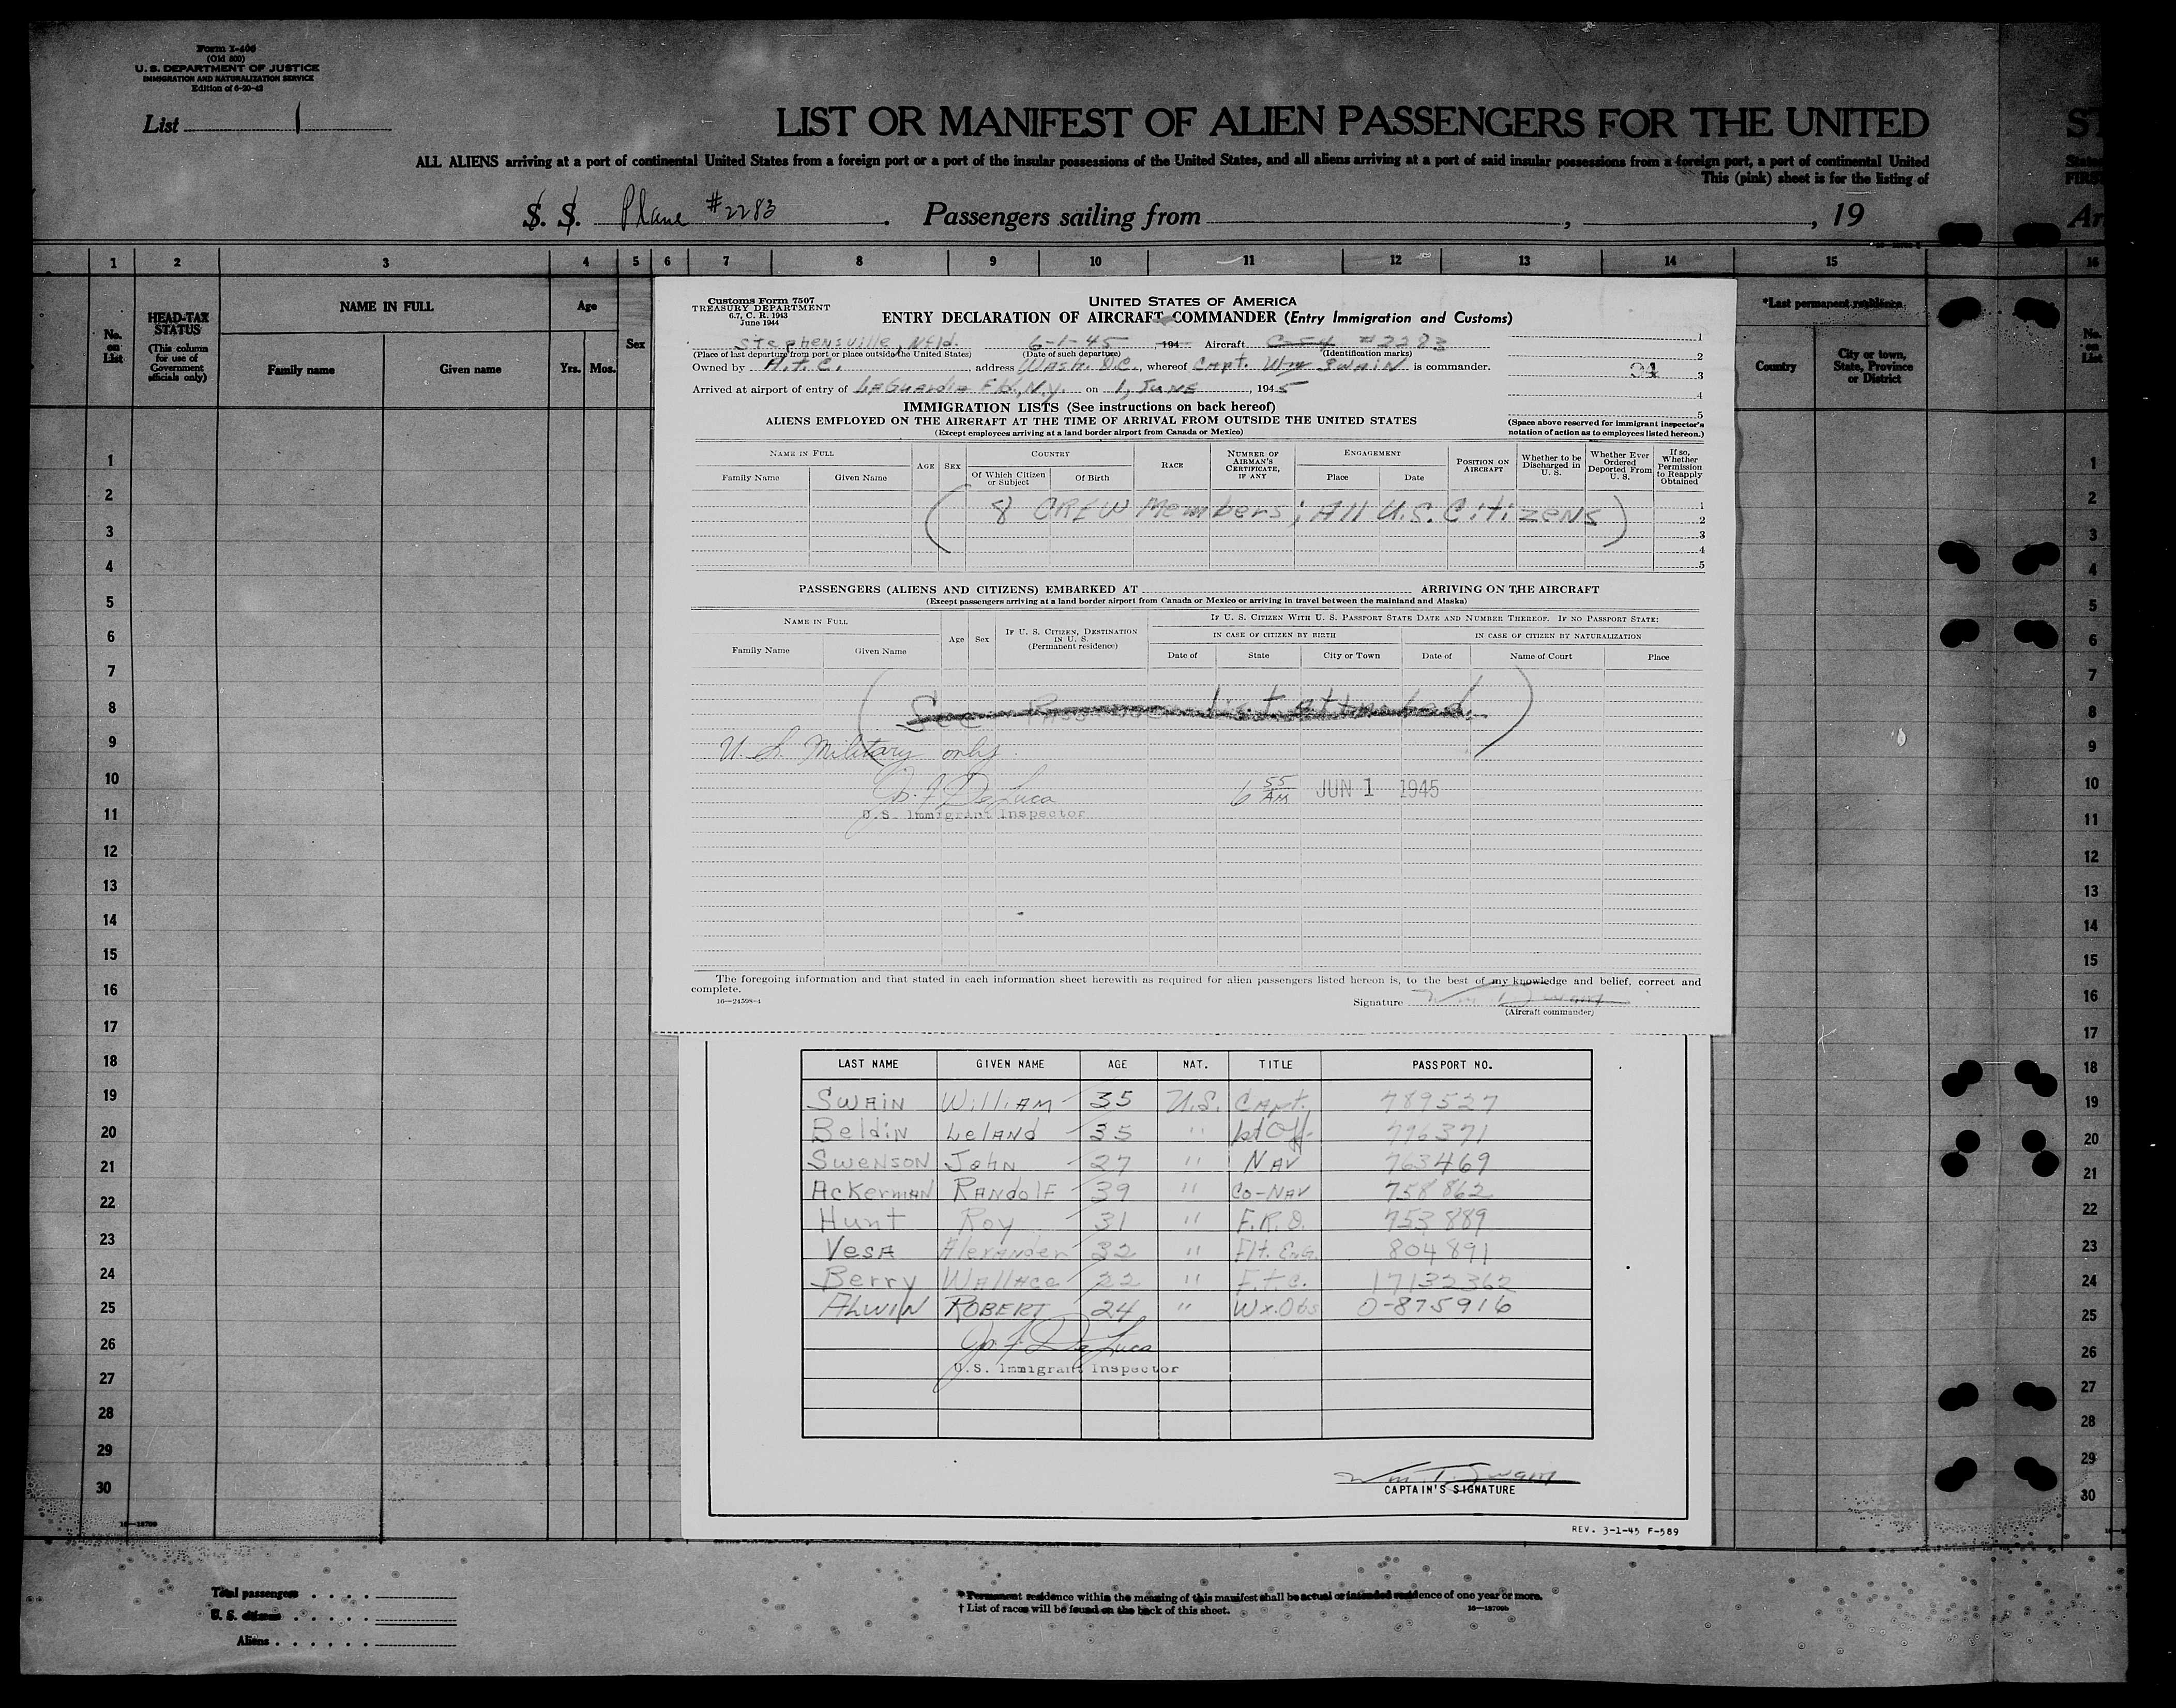 Form I-400
(Old 500)
U. S. DEPARTMENT OF JUSTICE
IMMIGRATION AND NATURALIZATION SERVICE
Edition of 6-20-43
List 1
LIST OR MANIFEST OF ALIEN PASSENGERS FOR THE UNITED
ST
ALL ALIENS arriving at a port of continental United States from a foreign port or a port of the insular possessions of the United States, and all aliens arriving at a port of said insular possessions from a foreign port, a port of continental United
This (pink) sheet is for the listing of
S. S. Plane #2283. Passengers sailing from , , 19
Ar
1 2 3 4 5 6 7 8 9 10 11 12 13 14 15 16
No. on List
HEAD-TAX STATUS
(This column for use of Government officials only)
NAME IN FULL
Family name
Given name
Age
Yrs. Mos.
Sex
*Last permanent residence
Country
City or town, State, Province or District
No. on List
1
2
3
4
5
6
7
8
9
10
11
12
13
14
15
16
17
18
19
20
21
22
23
24
25
26
27
28
29
30
Customs Form 7507
TREASURY DEPARTMENT
6.7, C. R. 1943
June 1944
UNITED STATES OF AMERICA
ENTRY DECLARATION OF AIRCRAFT COMMANDER (Entry Immigration and Customs)
Stephensville, Nfld. 6-1-45 194 Aircraft C-54 #2283
(Place of last departure from port or place outside the United States) (Date of such departure) (Identification marks)
Owned by A.T.C. address Wash. D.C., whereof Capt. Wm Swain is commander.
Arrived at airport of entry of LaGuardia Fld, N.Y. on 1, June, 1945
1
2
3
4
5
(Space above reserved for immigrant inspector's notation of action as to employees listed hereon.)
IMMIGRATION LISTS (See instructions on back hereof)
ALIENS EMPLOYED ON THE AIRCRAFT AT THE TIME OF ARRIVAL FROM OUTSIDE THE UNITED STATES
(Except employees arriving at a land border airport from Canada or Mexico)
NAME IN FULL
Family Name
Given Name
AGE
SEX
COUNTRY
Of Which Citizen or Subject
Of Birth
RACE
NUMBER OF AIRMAN'S CERTIFICATE, IF ANY
ENGAGEMENT
Place
Date
POSITION ON AIRCRAFT
Whether to be Discharged in U. S.
Whether Ever Ordered Deported From U. S.
If so, Whether Permission to Reapply Obtained
(8 CREW Members; All U.S. Citizens)
1
2
3
4
5
PASSENGERS (ALIENS AND CITIZENS) EMBARKED AT ARRIVING ON THE AIRCRAFT
(Except passengers arriving at a land border airport from Canada or Mexico or arriving in travel between the mainland and Alaska)
NAME IN FULL
Family Name
Given Name
Age
Sex
IF U. S. CITIZEN, DESTINATION IN U. S.
(Permanent residence)
IF U. S. CITIZEN WITH U. S. PASSPORT STATE DATE AND NUMBER THEREOF. IF NO PASSPORT STATE:
IN CASE OF CITIZEN BY BIRTH
IN CASE OF CITIZEN BY NATURALIZATION
Date of
State
City or Town
Date of
Name of Court
Place
(See list attached.)
U. S. Military only.
Jos. F. DeLuca 6 55 AM JUN 1 1945
U.S. Immigrant Inspector
The foregoing information and that stated in each information sheet herewith as required for alien passengers listed hereon is, to the best of my knowledge and belief, correct and
complete.
16—24598-4
Signature Wm T Swain
(Aircraft commander)
LAST NAME GIVEN NAME AGE NAT. TITLE PASSPORT NO.
Swain William 35 U.S. Capt. 789527
Beldin Leland 35 " 1st Off. 796371
Swenson John 27 " Nav 763469
Ackerman Randolf 39 " Co-Nav 758862
Hunt Roy 31 " F.R.O. 753889
Vesa Alexander 32 " Flt. Eng. 804891
Berry Wallace 22 " F.t.c. 17132362
Alwin Robert 24 " Wx.Obs 0-875916
Jos. F. DeLuca
U.S. Immigrant Inspector
Wm. T. Swain
CAPTAIN'S SIGNATURE
REV. 3-1-45 F-589
Total passengers
U. S. citizens
Aliens
* Permanent residence within the meaning of this manifest shall be actual or intended residence of one year or more.
† List of races will be found on the back of this sheet.